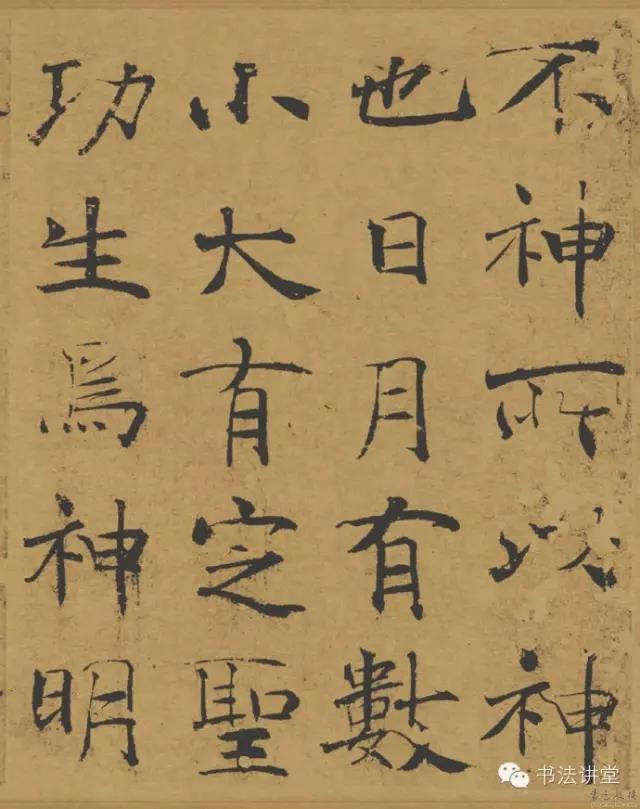 不神所以神
也日月有數
小大有定聖
功生焉神明
书法讲堂